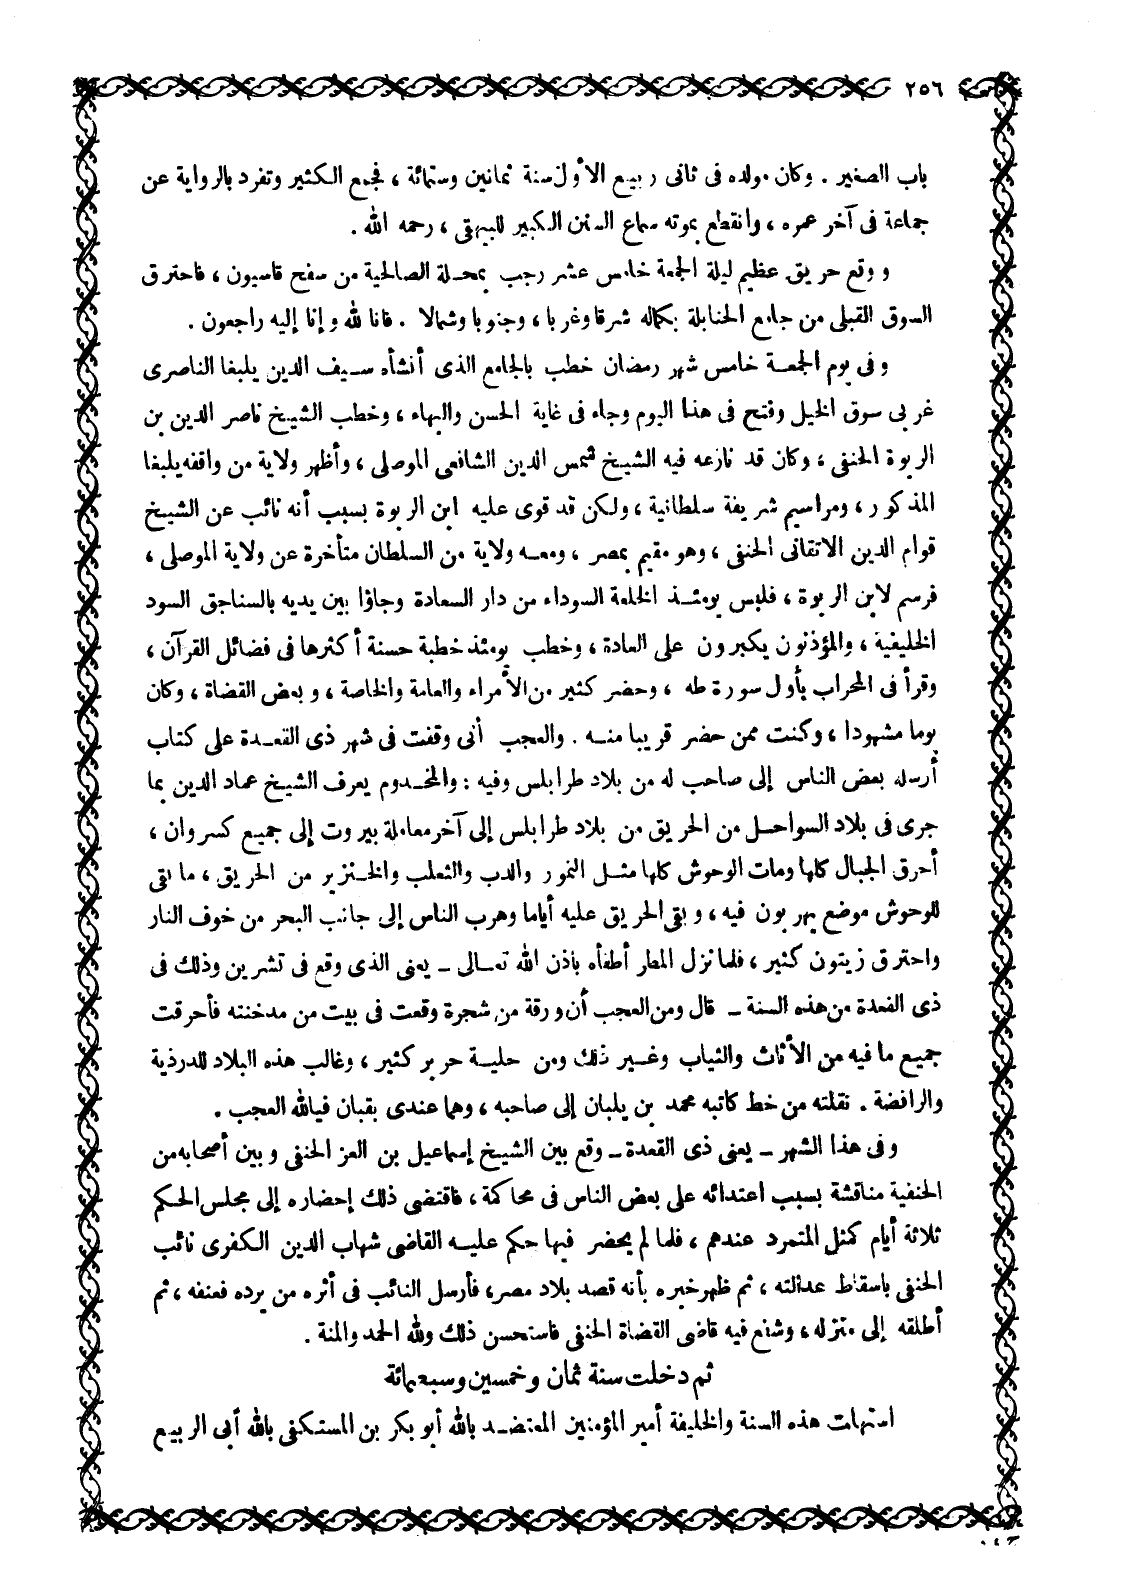 ٢٥٦
باب الصغير . وكان مولده فى ثانى ربيع الأول سنة ثمانين وستمائة ، فجمع الكثير وتفرد بالرواية عن
جماعة فى آخر عمره ، وانقطع بموته سماع السنن الكبير للبيهقى ، رحمه الله .
ووقع حريق عظيم ليلة الجمعة خامس عشر رجب بمحلة الصالحية من سفح قاسيون ، فاحترق
السوق القبلى من جامع الحنابلة بكماله شرقا وغربا ، وجنوبا وشمالا . فانا لله وإنا إليه راجعون .
وفى يوم الجمعة خامس شهر رمضان خطب بالجامع الذى أنشأه سيف الدين يلبغا الناصرى
غربى سوق الخيل وفتح فى هذا اليوم وجاء فى غاية الحسن والبهاء ، وخطب الشيخ ناصر الدين بن
الربوة الحنفى ، وكان قد نازعه فيه الشيخ شمس الدين الشافعى الموصلى ، وأظهر ولاية من واقفه يلبغا
المذكور ، ومراسيم شريفة سلطانية ، ولكن قد قوى عليه ابن الربوة بسبب أنه نائب عن الشيخ
قوام الدين الاتقانى الحنفى ، وهو مقيم بمصر ، ومعه ولاية من السلطان متأخرة عن ولاية الموصلى ،
فرسم لابن الربوة ، فلبس يومئذ الخلعة السوداء من دار السعادة وجاؤا بين يديه بالسناجق السود
الخليفية ، والمؤذنون يكبرون على العادة ، وخطب يومئذ خطبة حسنة أكثرها فى فضائل القرآن ،
وقرأ فى المحراب بأول سورة طه ، وحضر كثير من الأمراء والعامة والخاصة ، وبعض القضاة ، وكان
يوما مشهودا ، وكنت ممن حضر قريبا منه . والعجب أنى وقفت فى شهر ذى القعدة على كتاب
أرسله بعض الناس إلى صاحب له من بلاد طرابلس وفيه : والمخدوم يعرف الشيخ عماد الدين بما
جرى فى بلاد السواحل من الحريق من بلاد طرابلس إلى آخر معاملة بيروت إلى جميع كسروان ،
أحرق الجبال كلها ومات الوحوش كلها مثل النمور والدب والثعلب والخنزير من الحريق ، ما بقى
للوحوش موضع يهربون فيه ، وبقى الحريق عليه أياما وهرب الناس إلى جانب البحر من خوف النار
واحترق زيتون كثير ، فلما نزل المطر أطفأه باذن الله تعالى ــ يعنى الذى وقع فى تشرين وذلك فى
ذى القعدة من هذه السنة ــ قال ومن العجب أن ورقة من شجرة وقعت فى بيت من مدخنته فأحرقت
جميع ما فيه من الأثاث والثياب وغير ذلك ومن حلية حرير كثير ، وغالب هذه البلاد للدرذية
والرافضة . نقلته من خط كاتبه محمد بن يلبان إلى صاحبه ، وهما عندى بقبان فيالله العجب .
وفى هذا الشهر ــ يعنى ذى القعدة ــ وقع بين الشيخ إسماعيل بن العز الحنفى وبين أصحابه من
الحنفية مناقشة بسبب اعتدائه على بعض الناس فى محاكمة ، فاقتضى ذلك إحضاره إلى مجلس الحكم
ثلاثة أيام كمثل المتمرد عندهم ، فلما لم يحضر فيها حكم عليه القاضى شهاب الدين الكفرى نائب
الحنفى باسقاط عدالته ، ثم ظهر خبره بأنه قصد بلاد مصر ، فأرسل النائب فى أثره من يرده فعنفه ، ثم
أطلقه إلى منزله ، وشفع فيه قاضى القضاة الحنفى فاستحسن ذلك ولله الحمد والمنة .
ثم دخلت سنة ثمان وخمسين وسبعمائة
استهلت هذه السنة والخليفة أمير المؤمنين المعتضد بالله أبو بكر بن المستكفى بالله أبى الربيع